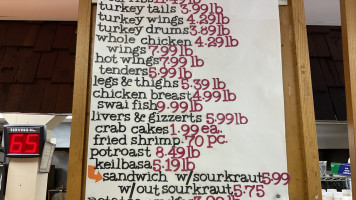 turkey tails 3.99lb
turkey wings 4.29lb
turkey drums3.89lb
whole chicken 4.29lb
wings7.99lb
hot wings7.99lb
tenders5.99lb
legs & thighs 5.39 lb
chicken breast4.99lb
swai fish9.99lb
livers & gizzerts 5.99lb
crab cakes1.99ea.
fried shrimp.70 pc.
potroast 8.49lb
keilbasa5.19lb
sandwich w/sourkraut5.99
w/out sourkraut5.75
65